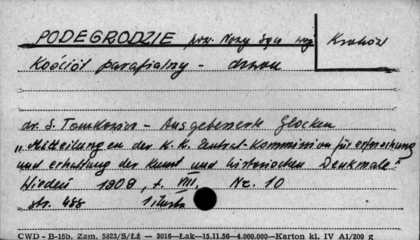 PODEGRODZIE pow. Nowy Sącz woj. Kraków
Kościół parafialny - dzwon
dr. S. Tomkowicz - Ausgebenerte Glocken
"Mitteilungen der K. K. Zentral-Kommission für erforschung
und erhaltung der Kunst und historischen Denkmale"
Wiedeń 1909, t. VIII, Nr. 10
str. 488 1 ilustr.
CWD - B-15b. Zam. 5823/S/Łż — 3016—Łak—15.11.56—4.000.000—Karton kl. IV A1/200 g